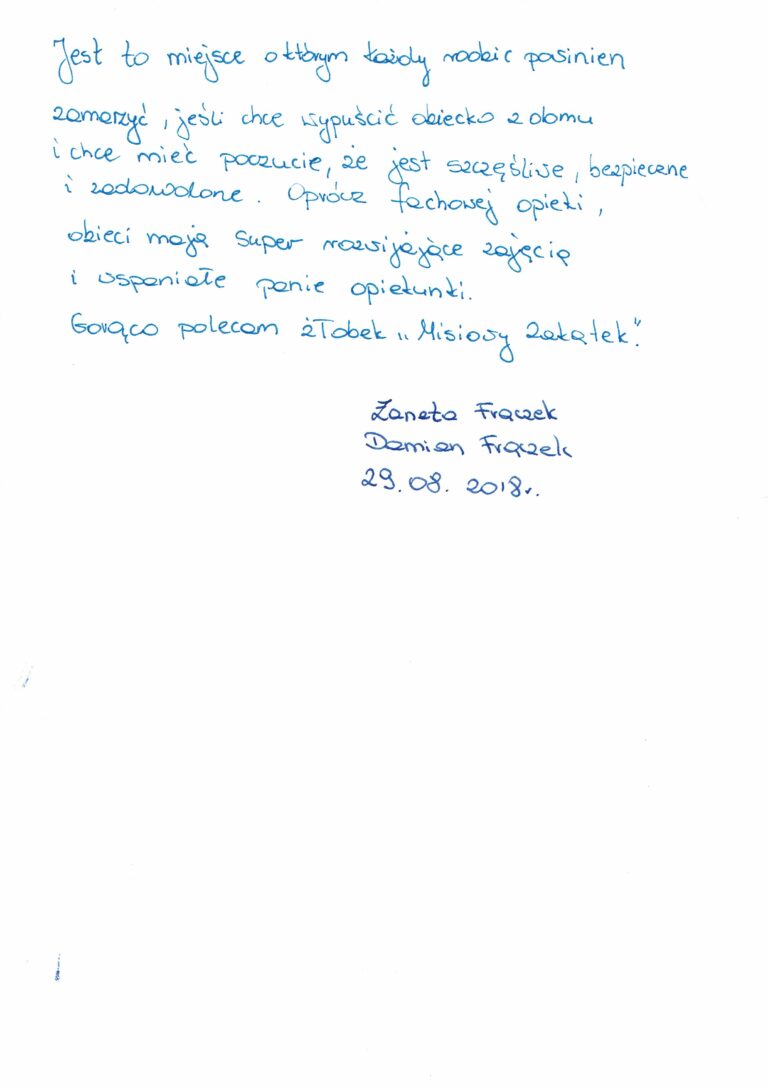 Jest to miejsce o którym każdy rodzic powinien
zamarzyć, jeśli chce wypuścić dziecko z domu
i chce mieć poczucie, że jest szczęśliwe, bezpieczne
i zadowolone. Oprócz fachowej opieki,
dzieci mają super rozwijające zajęcia
i wspaniałe panie opiekunki.
Gorąco polecam żłobek „Misiowy Zakątek".
Żaneta Frączek
Damian Frączek
29.08. 2018r.